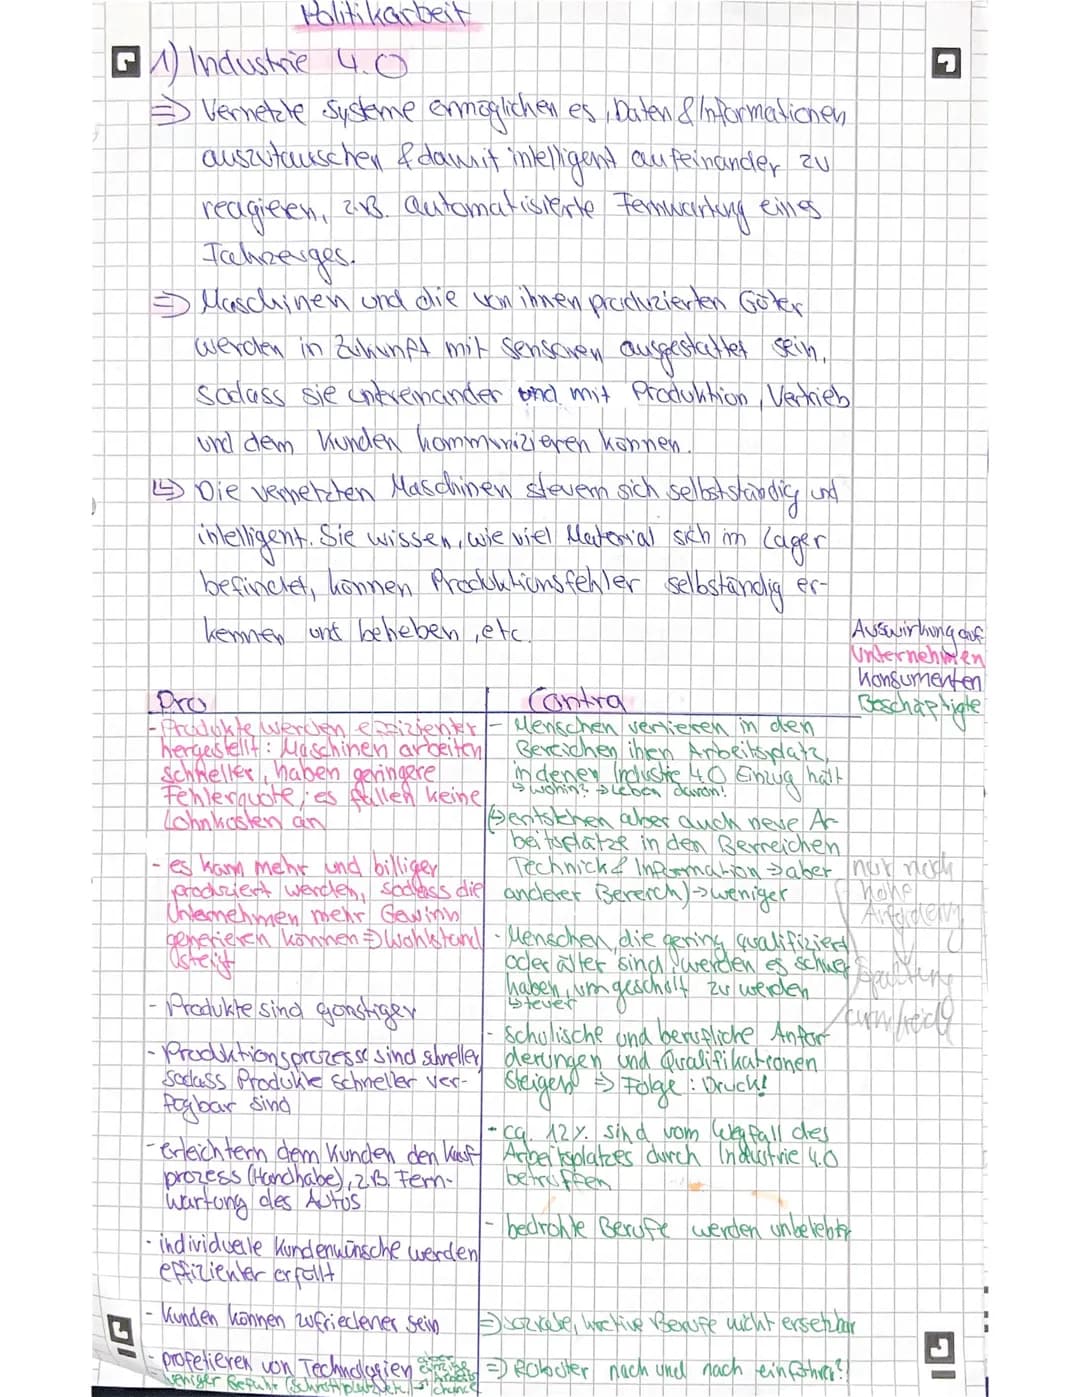 Politikarbeit
1) Industrie 4.0
=> Vernetzte Systeme ermöglichen es, Daten & Informationen
auszutauschen & damit intelligent aufeinander zu
reagieren, z.B. automatisierte Fernwartung eines
Fahrzeuges.
=> Maschinen und die von ihnen produzierten Güter
werden in Zukunft mit Sensoren ausgestattet sein,
sodass sie untereinander und mit Produktion, Vertrieb
und dem Kunden kommunizieren können.
↳ Die vernetzten Maschinen steuern sich selbstständig und
intelligent. Sie wissen, wie viel Material sich im Lager
befindet, können Produktionsfehler selbständig er-
kennen und beheben, etc.
Auswirkung auf
Unternehmen
Konsumenten
Beschäftigte
Pro
- Produkte werden effizienter
hergestellt: Maschinen arbeiten
schneller, haben geringere
Fehlerquote, es fallen keine
Lohnkosten an
- es kann mehr und billiger
produziert werden, sodass die
Unternehmen mehr Gewinn
generieren können => Wohlstand
steigt
- Produkte sind günstiger
- Produktionsprozesse sind schneller,
sodass Produkte schneller ver-
fügbar sind
- erleichtern dem Kunden den Kauf-
prozess (Handhabe), z.B. Fern-
wartung des Autos
- individuelle Kundenwünsche werden
effizienter erfüllt
- Kunden können zufriedener sein
- profetieren von Technologien
weniger Gefahr
Contra
- Menschen verlieren in den
Bereichen ihren Arbeitsplatz,
in denen Industrie 4.0 Einzug hält
↳ wohin? → Leben davon!
(↳ entstehen aber auch neue Ar-
beitsplätze in den Berreichen
Technick & Information => aber
anderer Bereich) → weniger
nur noch
hohe
Anforderung
Spaltung
arm/reich
- Menschen, die gering qualifiziert
oder älter sind, werden es schwer
haben, um geschult zu werden
↳ teuer
- schulische und berufliche Anfor-
derungen und Qualifikationen
steigen => Folge: Druck!
- ca. 12% sind vom Wegfall des
Arbeitsplatzes durch Industrie 4.0
betroffen
- bedrohte Berufe werden unbeliebt
=> soziale, kreative Berufe nicht ersetzbar
=> Roboter nach und nach einführen?!